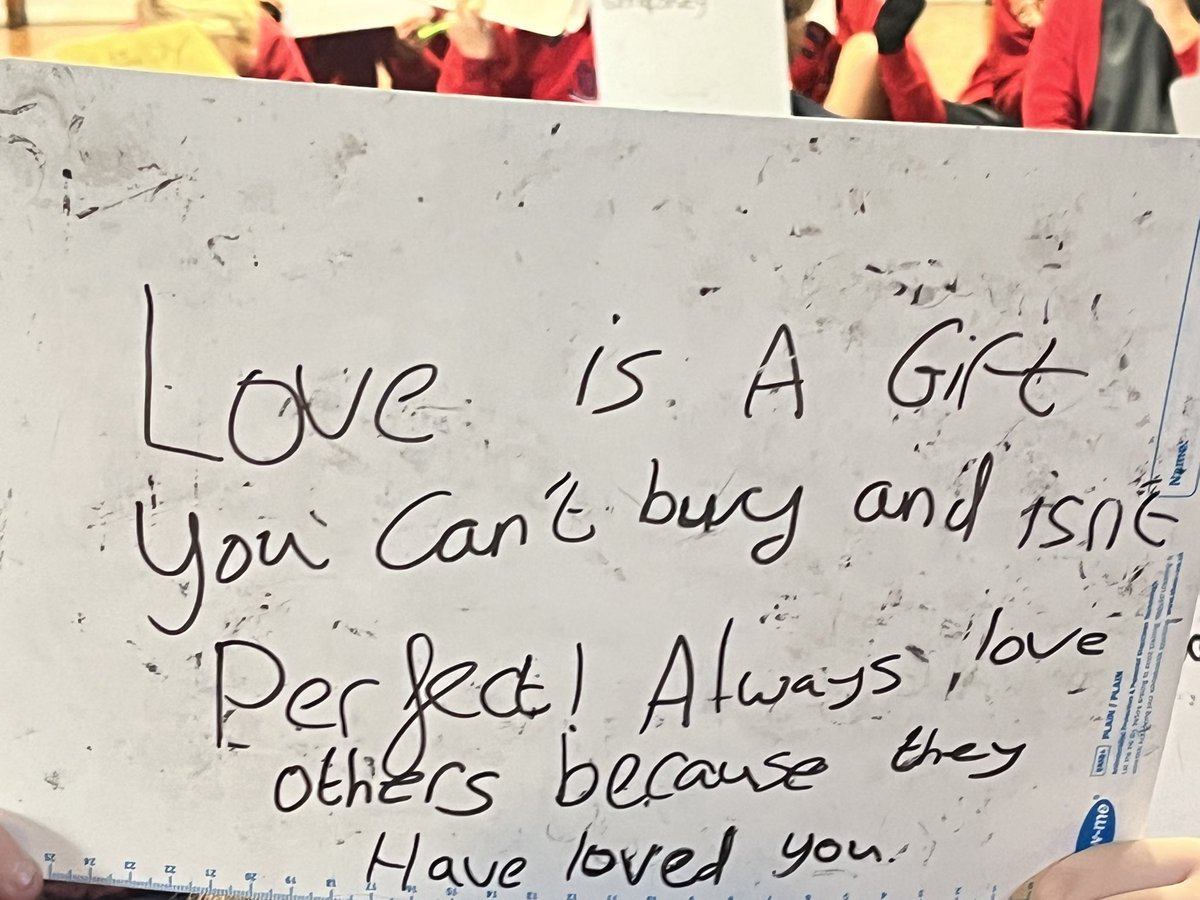 Love is A Gift
you can't buy and isn't
Perfect! Always love
others because they
Have loved you.
Name:
PLAIN / PLAIN
25 24 23 22 21 20 19 18 17